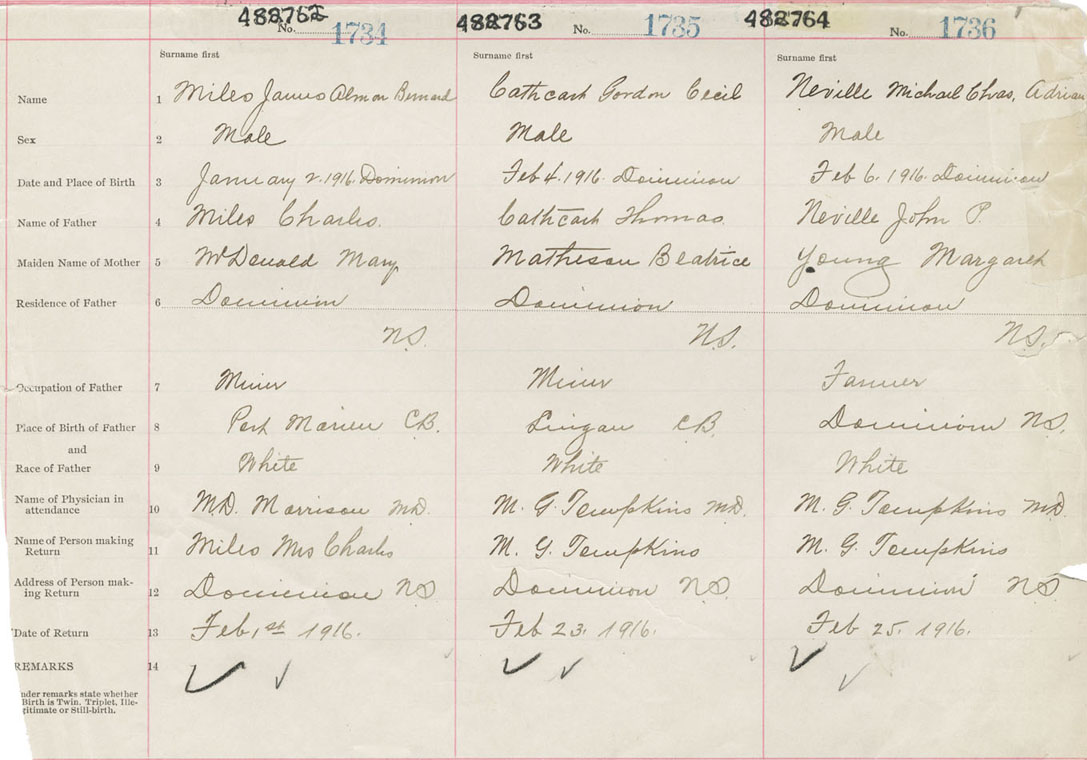 488762 488763 488764
No. 1734 No. 1735 No. 1736
Surname first Surname first Surname first
Name 1 Miles James Almon Bernard Cathcart Gordon Cecil Neville Michael Chas. Adrian
Sex 2 Male Male Male
Date and Place of Birth 3 January 2. 1916. Dominion Feb 4. 1916. Dominion Feb 6. 1916. Dominion
Name of Father 4 Miles Charles. Cathcart Thomas. Neville John P
Maiden Name of Mother 5 McDonald Mary Matheson Beatrice Young Margaret
Residence of Father 6 Dominion Dominion Dominion
N.S. N.S. N.S.
Occupation of Father 7 Miner Miner Farmer
Place of Birth of Father 8 Port Marien C.B. Lingan C.B. Dominion N.S.
and
Race of Father 9 White White White
Name of Physician in
attendance 10 M.D. Morrison M.D. M. G. Tompkins M.D. M. G. Tompkins M.D.
Name of Person making
Return 11 Miles Mrs Charles M. G. Tompkins M. G. Tompkins
Address of Person mak-
ing Return 12 Dominion N.S. Dominion N.S. Dominion N.S.
Date of Return 13 Feb. 1st 1916. Feb 23. 1916. Feb 25. 1916.
REMARKS 14
nder remarks state whether
Birth is Twin. Triplet, Ille-
gitimate or Still-birth.